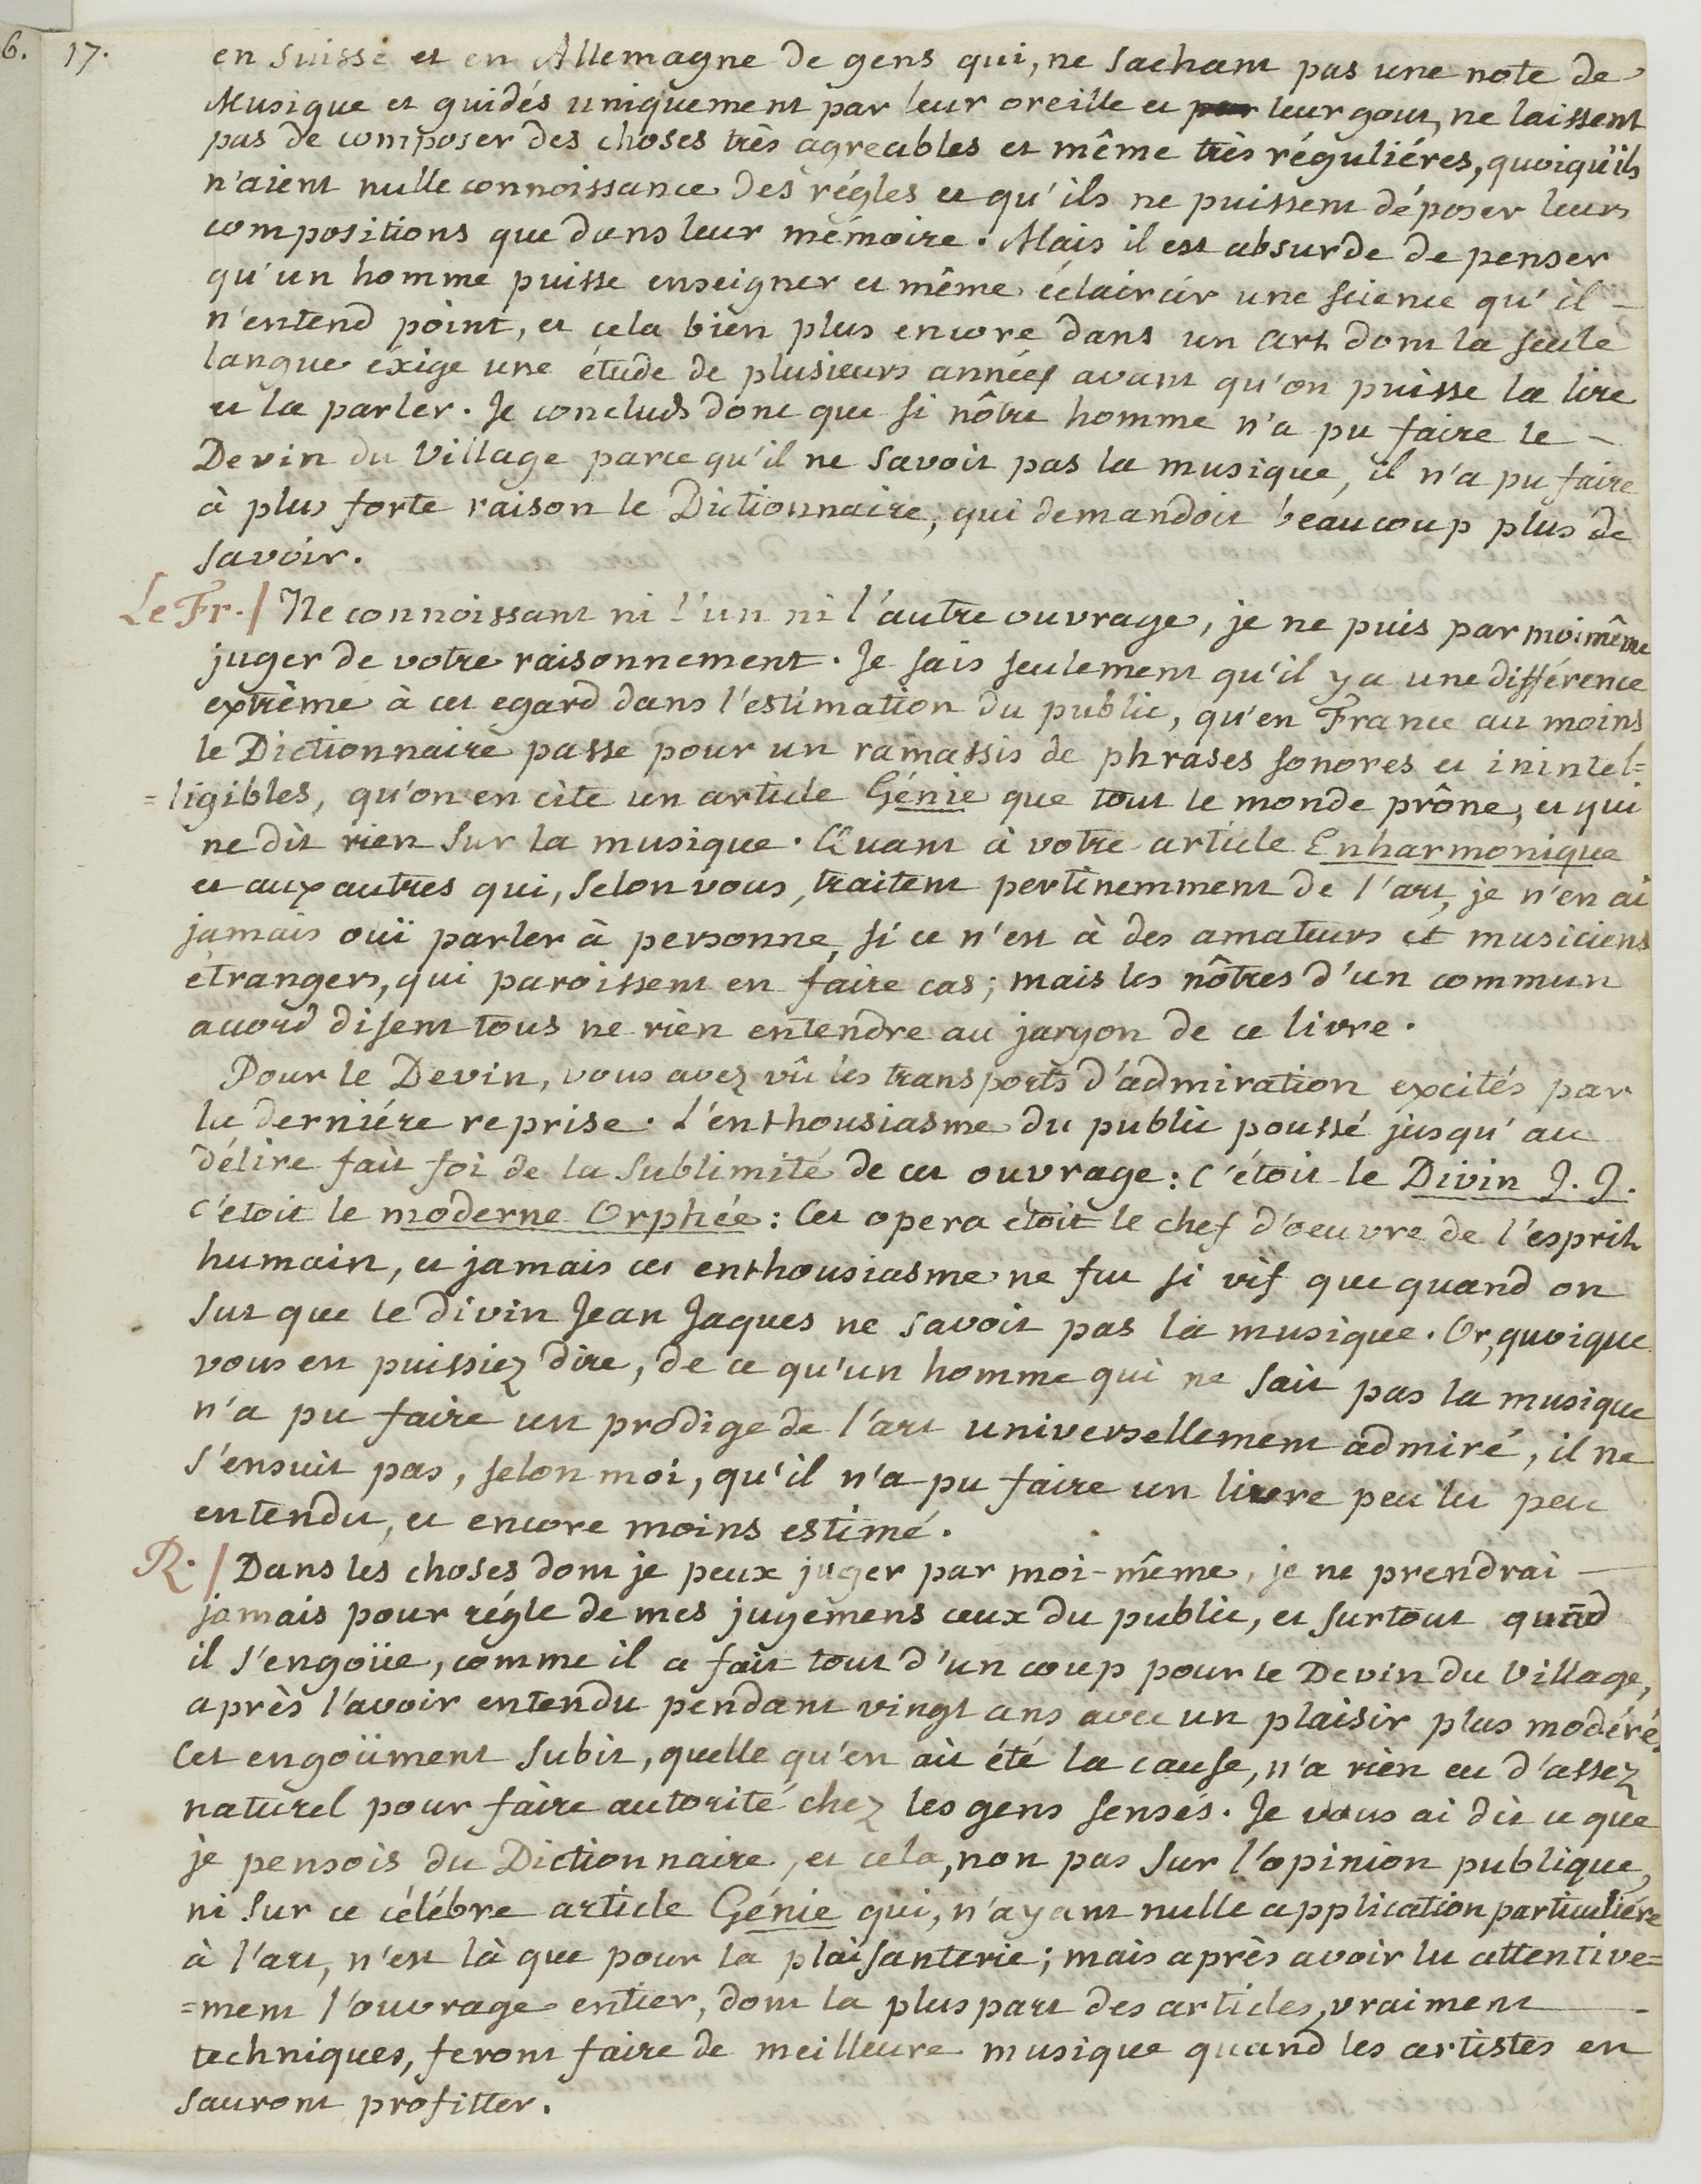 6. 17.
en Suisse et en Allemagne de gens qui, ne sachant pas une note de
Musique et guidés uniquement par leur oreille et par leur gout, ne laissent
pas de composer des choses très agreables et même très réguliéres, quoiqu'ils
n'aient nulle connoissance des régles et qu'ils ne puissent déposer leurs
compositions que dans leur mémoire. Mais il est absurde de penser
qu'un homme puisse enseigner et même éclaircir une science qu'il –
n'entend point, et cela bien plus encore dans un art dont la seule
langue exige une étude de plusieurs années avant qu'on puisse la lire
et la parler. Je concluds donc que si nôtre homme n'a pu faire le –
Devin du Village parce qu'il ne savoit pas la musique, il n'a pu faire
à plus forte raison le Dictionnaire, qui demandoit beaucoup plus de
savoir.
Le Fr. / Ne connoissant ni l'un ni l'autre ouvrage, je ne puis par moi même
juger de votre raisonnement. Je sais seulement qu'il y a une différence
extrème à cet egard dans l'estimation du public, qu'en France au moins
le Dictionnaire passe pour un ramassis de phrases sonores et inintel=
=ligibles, qu'on en cite un article Génie que tout le monde prône, et qui
ne dit rien sur la musique. Quant à votre article Enharmonique
et aux autres qui, selon vous, traitent pertinemment de l'art, je n'en ai
jamais ouï parler à personne, si ce n'est à des amateurs et musiciens
étrangers, qui paroissent en faire cas; mais les nôtres d'un commun
accord disent tous ne rien entendre au jargon de ce livre.
Pour le Devin, vous avez vû les transports d'admiration excités par
la derniére reprise. L'enthousiasme du public poussé jusqu'au
délire fait foi de la sublimité de cet ouvrage: c'étoit le Divin J. J.
c'étoit le moderne Orphée: Cet opera étoit le chef d'oeuvre de l'esprit
humain, et jamais cet enthousiasme ne fut si vif que quand on
sut que le divin Jean Jaques ne savoit pas la musique. Or, quoique
vous en puissiez dire, de ce qu'un homme qui ne sait pas la musique
n'a pu faire un prodige de l'art universellement admiré, il ne
s'ensuit pas, selon moi, qu'il n'a pu faire un livre peu lu peu
entendu, et encore moins estimé.
R. / Dans les choses dont je peux juger par moi-même, je ne prendrai –
jamais pour régle de mes jugemens ceux du public, et surtout quād
il s'engoüe, comme il a fait tout d'un coup pour le Devin du Village,
après l'avoir entendu pendant vingt ans avec un plaisir plus modéré.
Cet engoüment subit, quelle qu'en ait été la cause, n'a rien eu d'assez
naturel pour faire autorité chez les gens sensés. Je vous ai dit ce que
je pensois du Dictionnaire, et cela, non pas sur l'opinion publique,
ni sur ce célébre article Génie qui, n'ayant nulle application particuliére
à l'art, n'est là que pour la plaisanterie; mais après avoir lu attentive=
=ment l'ouvrage entier, dont la pluspart des articles, vraiment –
techniques, feront faire de meilleure musique quand les artistes en
sauront profitter.